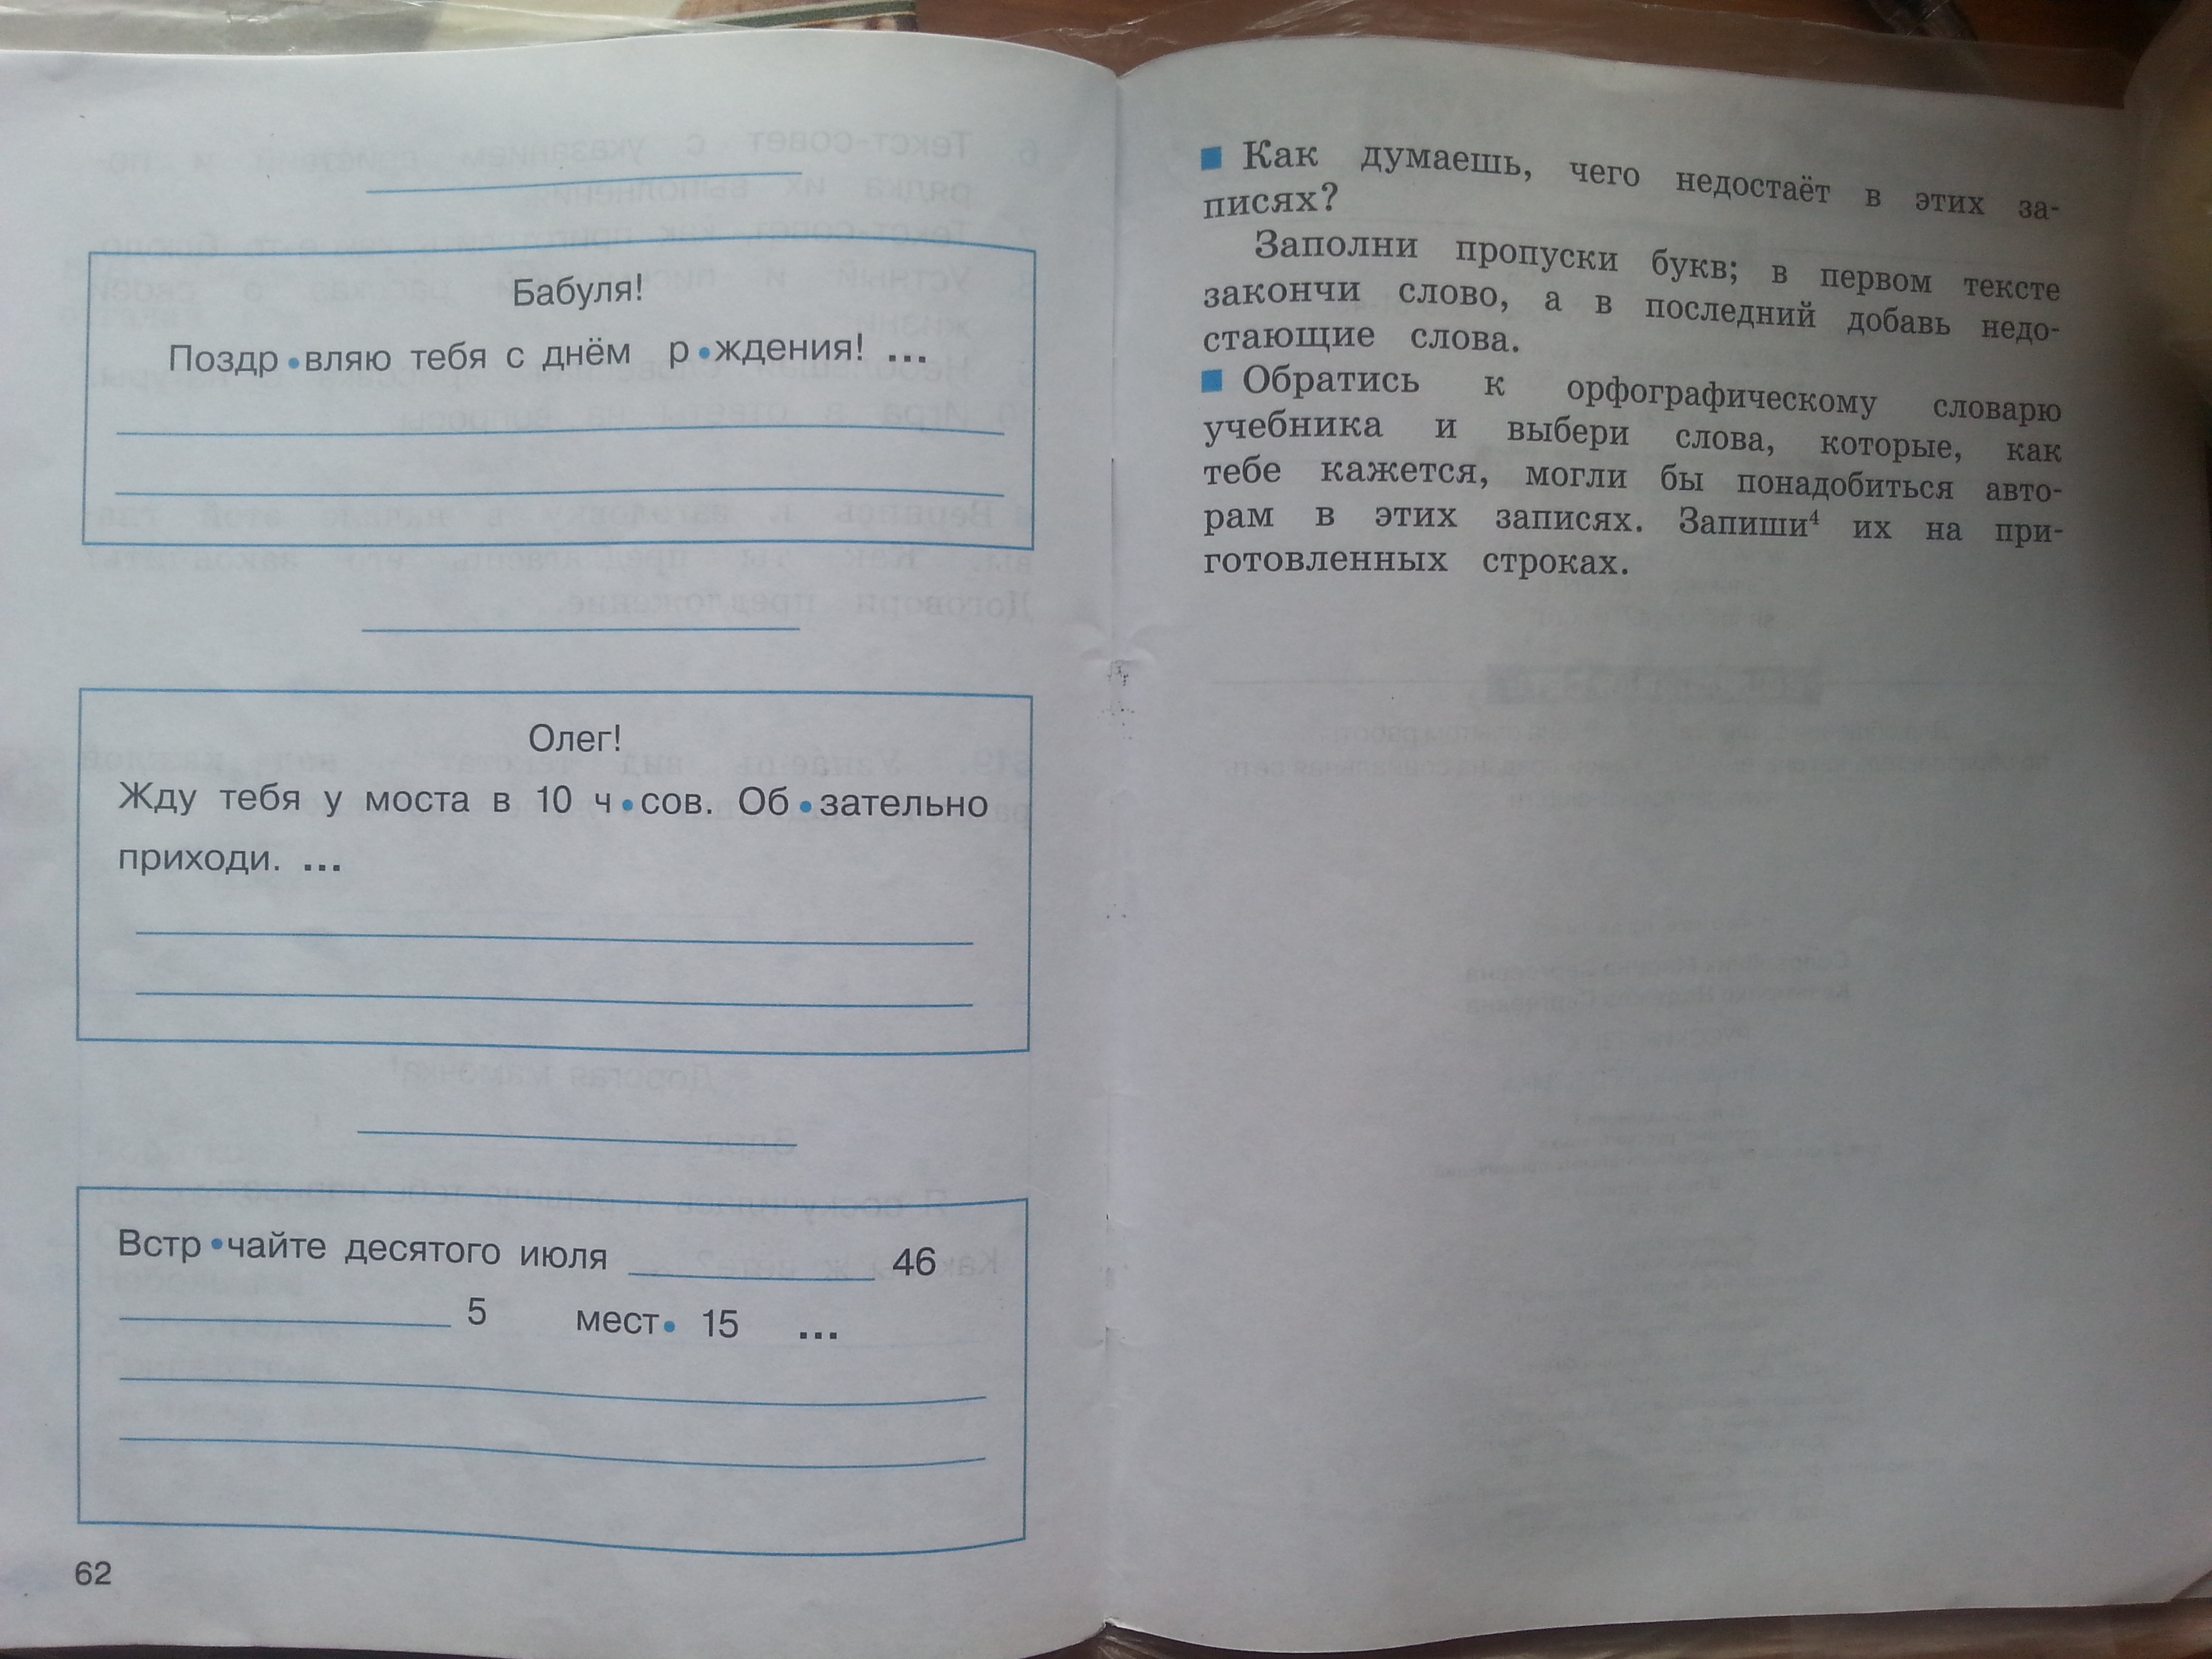 Бабуля!
Поздр•вляю тебя с днём р•ждения! ...
Олег!
Жду тебя у моста в 10 ч•сов. Об•зательно
приходи. ...
Встр•чайте десятого июля ____ 46
____ 5 мест• 15 ...
62
■ Как думаешь, чего недостаёт в этих за-
писях?
Заполни пропуски букв; в первом тексте
закончи слово, а в последний добавь недо-
стающие слова.
■ Обратись к орфографическому словарю
учебника и выбери слова, которые, как
тебе кажется, могли бы понадобиться авто-
рам в этих записях. Запиши⁴ их на при-
готовленных строках.